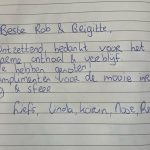 Beste Rob & Brigitte,
Ontzettend bedankt voor het
warme onthaal & verblijf.
We hebben genoten!
Complimenten voor de mooie
& sfeer
Liefs, Linda, Karin,